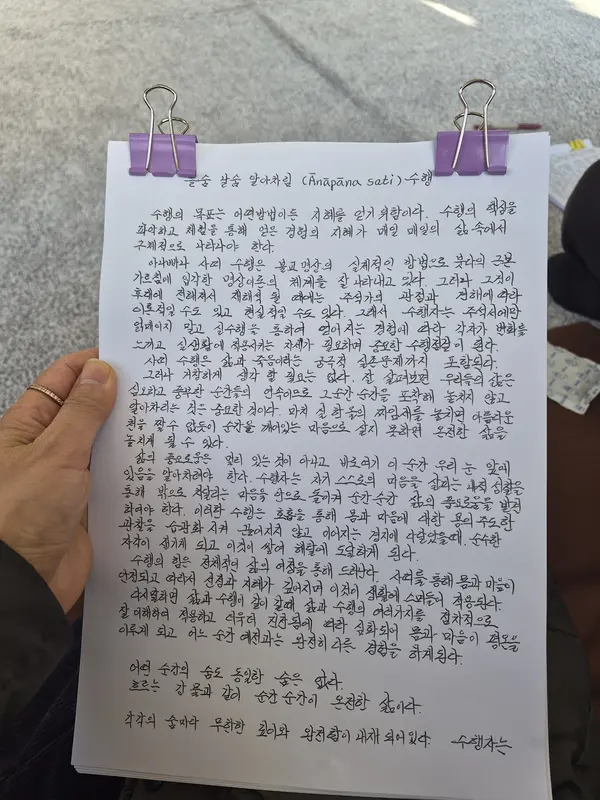 들숨 날숨 알아차림 (Ānāpāna sati) 수행
수행의 목표는 어떤방법이든 지혜를 얻기 위함이다. 수행의 핵심을
파악하고 체험을 통해 얻은 경험의 지혜가 매일 매일의 삶 속에서
구체적으로 나타나야 한다.
아나빠나 사띠 수행은 불교명상의 실제적인 방법으로 붓다의 근본
가르침에 입각한 명상이론의 체계를 잘 나타내고 있다. 그러나 그것이
후대에 전해져서 재해석 될 때에는 주석가의 관점과 견해에 따라
이론적일 수도 있고 현실적일 수도 있다. 그래서 수행자는 주석서에만
얽매이지 말고 실수행을 통하여 얻어지는 경험에 따라 각자가 변화를
느끼고 실생활에 적용시키는 자세가 필요하며 중요한 수행정점이 된다.
사띠 수행은 삶과 죽음이라는 궁극적 실존문제까지 포함된다.
그러나 거창하게 생각 할 필요는 없다. 잘 살펴보면 우리들의 삶은
심오하고 중요한 순간들의 연속이므로 그순간 순간을 포착해 놓치지 않고
알아차리는 것은 중요한 것이다. 마치 실 한 올의 짜임새를 놓치면 아름다운
천을 짤 수 없듯이 순간을 깨어있는 마음으로 살지 못하면 온전한 삶을
놓치게 될 수 있다.
삶의 풍요로움은 멀리 있는 것이 아니고 바로 여기 이 순간 우리 눈 앞에
있음을 알아차려야 한다. 수행자는 자기 스스로의 마음을 살피는 내적 성찰을
통해 밖으로 치달리는 마음을 안으로 돌이켜 순간 순간 삶의 풍요로움을 발견
하여야 한다. 이러한 수행은 호흡을 통해 몸과 마음에 대한 용의 주도한
관찰을 습관화 시켜 끊어지지 않고 이어지는 경지에 다달았을때, 순수한
자각이 생기게 되고 이것이 쌓여 해탈에 도달하게 된다.
수행의 힘은 전체적인 삶의 여정을 통해 드러난다. 사띠를 통해 몸과 마음이
안정되고 따라서 선정과 지혜가 깊어지며 이것이 생활에 스며들어 적용된다.
다시말하면 삶과 수행이 같이 갈때 삶과 수행의 여러가지를 점차적으로
잘 이해하여 적용하고 더욱더 진전됨에 따라 심화되어 몸과 마음이 평온을
이루게 되고 어느 순간 예전과는 완전히 다른 경험을 하게된다.
어떤 순간의 숨도 동일한 숨은 없다.
흐르는 강 물과 같이 순간 순간이 온전한 삶이다.
각각의 숨마다 무한한 깊이와 완전함이 내재 되어있다. 수행자는